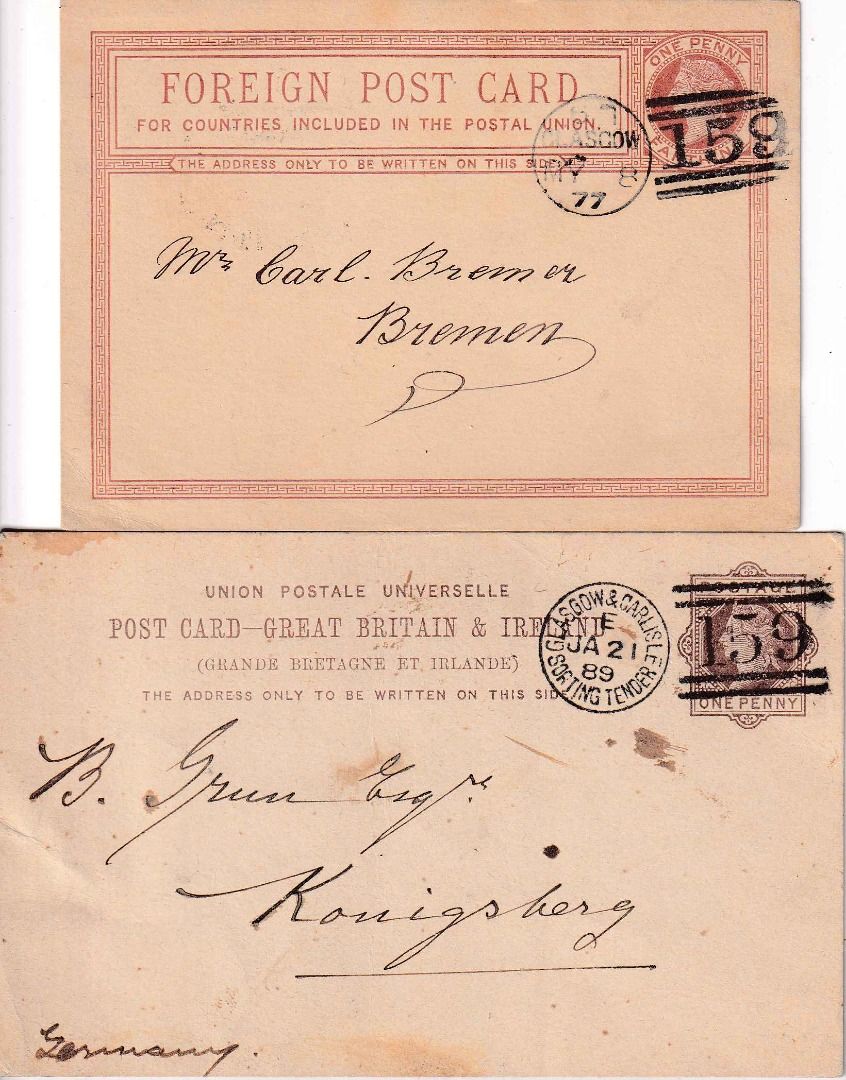 ONE PENNY
FOREIGN POST CARD
FOR COUNTRIES INCLUDED IN THE POSTAL UNION.
THE ADDRESS ONLY TO BE WRITTEN ON THIS SIDE
GLASGOW
MY 8
77
159
Mr Carl. Bremer
Bremen
UNION POSTALE UNIVERSELLE
POST CARD—GREAT BRITAIN & IRELAND
(GRANDE BRETAGNE ET IRLANDE)
THE ADDRESS ONLY TO BE WRITTEN ON THIS SIDE
GLASGOW & CARLISLE
E
JA 21
89
SORTING TENDER
POSTAGE
159
ONE PENNY
B. Grun Esqre
Konigsberg
Germany.